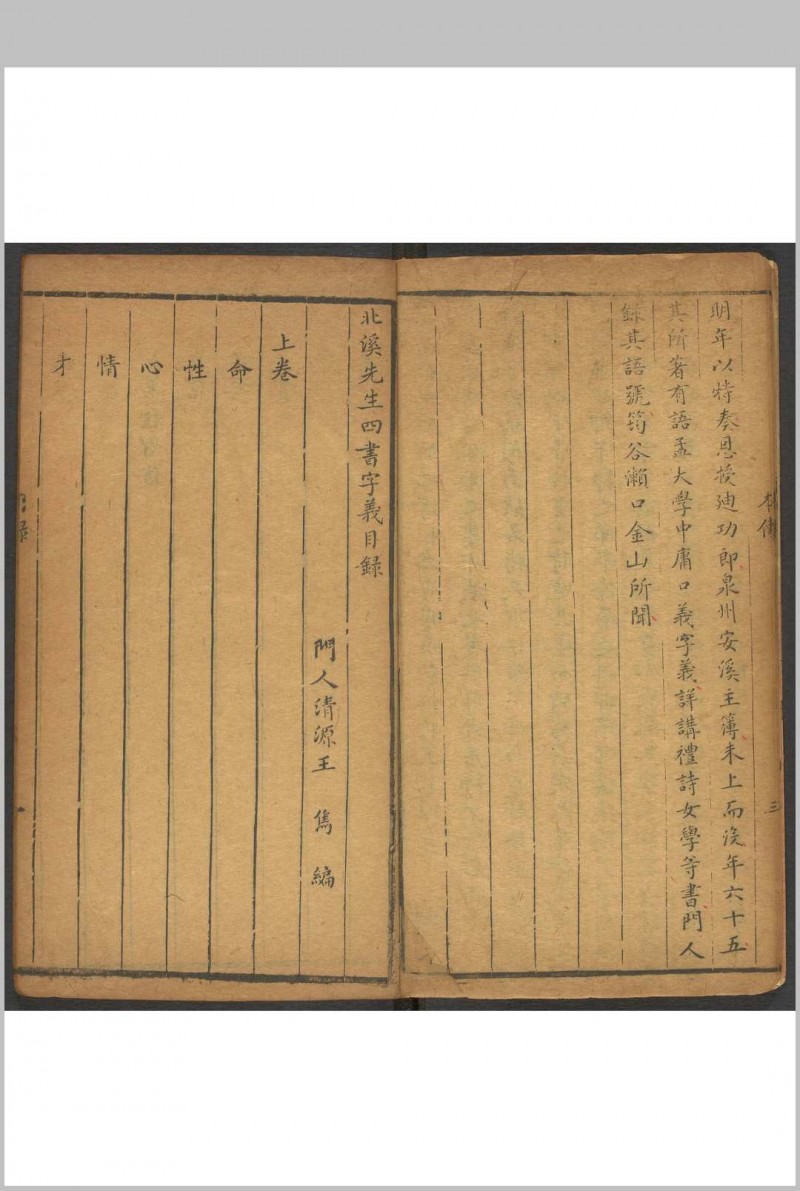 明年以特奏恩授廸功郎泉州安溪主簿未上而沒年六十五
其所著有語孟大學中庸口義字義詳講禮詩女學等書門人
錄其語號筠谷瀨口金山所聞
三
北溪先生四書字義目録
門人清源王雋編
上卷
命
性
心
情
才